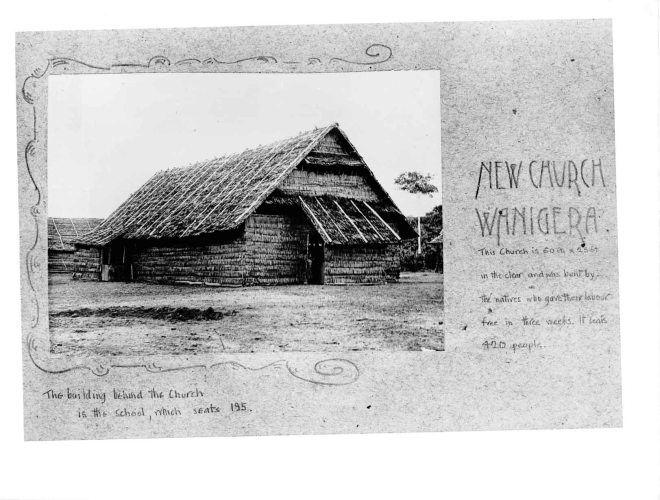 NEW CHURCH
WANIGERA.
This Church is 60 ft x
in the clear and was built by
the natives who gave their labour
free in three weeks. It seats
420 people.
The building behind the Church
is the school, which seats 195.